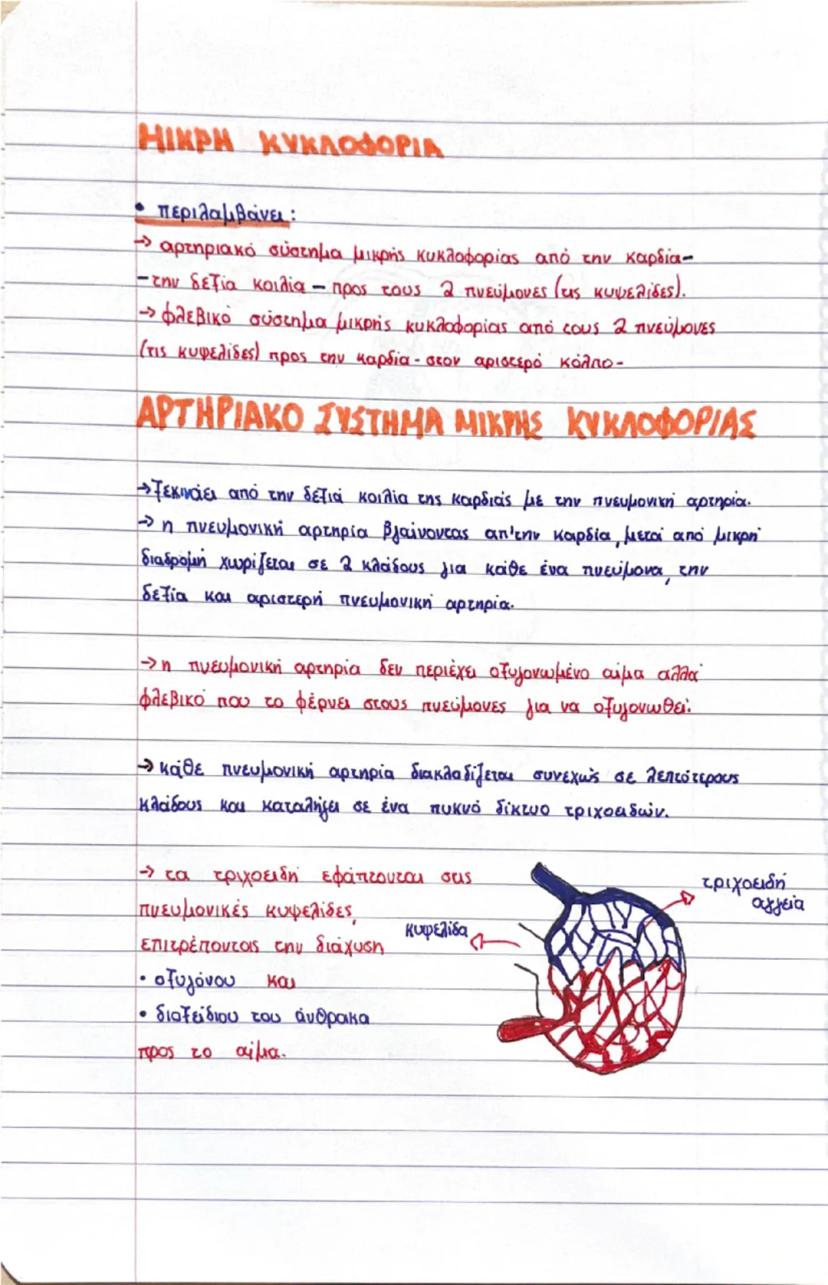 ΜΙΚΡΗ ΚΥΚΛΟΦΟΡΙΑ
• περιλαμβάνει:
→ αρτηριακό σύστημα μικρής κυκλοφορίας από την καρδία-
-την δεξία κοιλία - προς τους 2 πνεύμονες (τις κυψελίδες).
→ φλεβικό σύστημα μικρής κυκλοφορίας από τους 2 πνεύμονες
(τις κυψελίδες) προς την καρδία - στον αριστερό κόλπο-
ΑΡΤΗΡΙΑΚΟ ΣΥΣΤΗΜΑ ΜΙΚΡΗΣ ΚΥΚΛΟΦΟΡΙΑΣ
→ ξεκινάει από την δεξιά κοιλία της καρδιάς με την πνευμονική αρτηρία.
→ η πνευμονική αρτηρία βγαίνοντας απ'την καρδία, μετά από μικρή
διαδρομή χωρίζεται σε 2 κλάδους για κάθε ένα πνεύμονα, την
δεξία και αριστερή πνευμονική αρτηρία.
→ η πνευμονική αρτηρία δεν περιέχει οξυγονωμένο αίμα αλλά
φλεβικό που το φέρνει στους πνεύμονες για να οξυγονωθεί.
→ κάθε πνευμονική αρτηρία διακλαδίζεται συνεχώς σε λεπτότερους
κλάδους και καταλήγει σε ένα πυκνό δίκτυο τριχοειδών.
→ τα τριχοειδή εφάπτονται στις
πνευμονικές κυψελίδες,
επιτρέποντας την διάχυση
• οξυγόνου και
• διοξείδιου του άνθρακα
προς το αίμα.
κυψελίδα
τριχοειδή
αγγεία